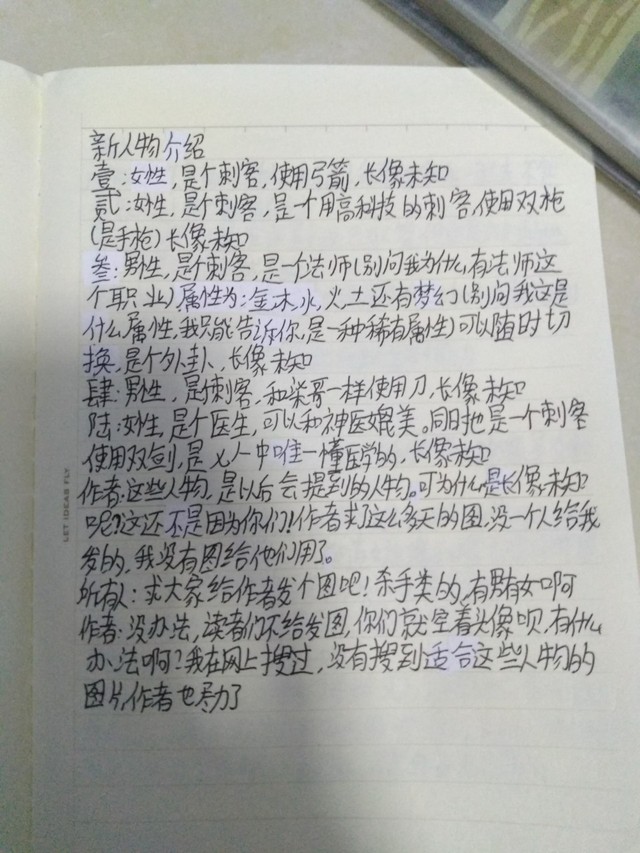 新人物介绍
壹:女性,是个刺客,使用弓箭,长像未知
贰:女性,是个刺客,是一个用高科技的刺客,使用双枪
(是手枪)长像未知
叁:男性,是个刺客,是一个法师(别问我为什么有法师这
个职业)属性为:金木水,火土还有梦幻(别问我这是
什么属性,我只能告诉你,是一种稀有属性)可以随时切
换,是个外卦,长像未知
肆:男性,是个刺客,和柒哥一样使用刀,长像未知
陆:女性,是个医生,可以和神医媲美。同时也是一个刺客
使用双剑,是七人中唯一懂医学的,长像未知
作者:这些人物,是以后会提到的人物。可为什么是长像未知
呢?这还不是因为你们!作者求了这么多天的图,没一个人给我
发的,我没有图给他们用了。
所有人:求大家给作者发个图吧!杀手类的,有男有女啊
作者:没办法,读者们不给发图,你们就空着头像呗,有什么
办法啊?我在网上搜过,没有搜到适合这些人物的
图片,作者也尽力了
LET IDEAS FLY